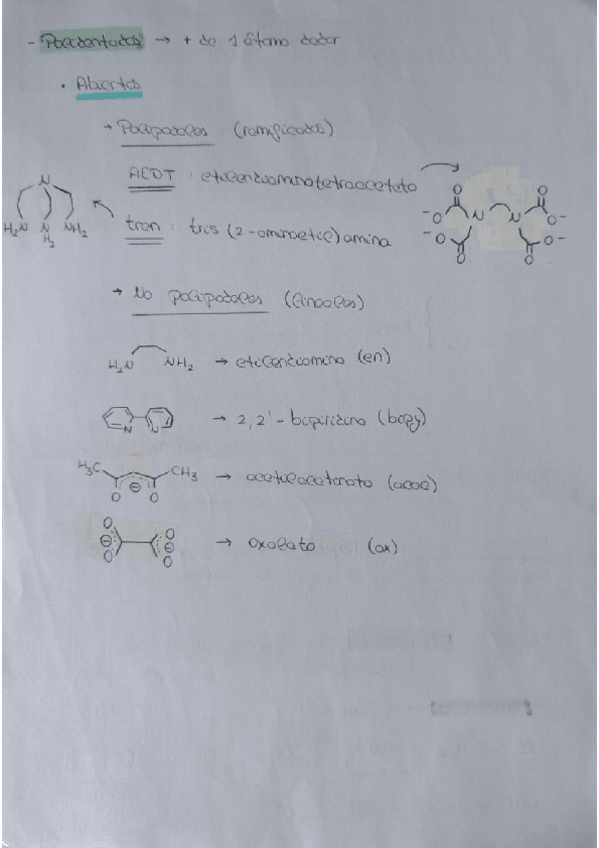 - Polidentados → + de 1 átomo dador
• Abiertos
→ Polipodales (ramificados)
AEDT : etilendiaminotetraacetato
tren : tris (2-aminoetil) amina
N
H₂N N H₂ NH₂
O O
⁻O N N O⁻
⁻O O⁻
O O
→ No polipodales (lineales)
H₂N NH₂ → etilendiamino (en)
N N → 2,2'-bipiridina (bipy)
H₃C CH₃ O ⊖ O → acetilacetonato (acac)
O ⊖ O O ⊖ O → oxalato (ox)